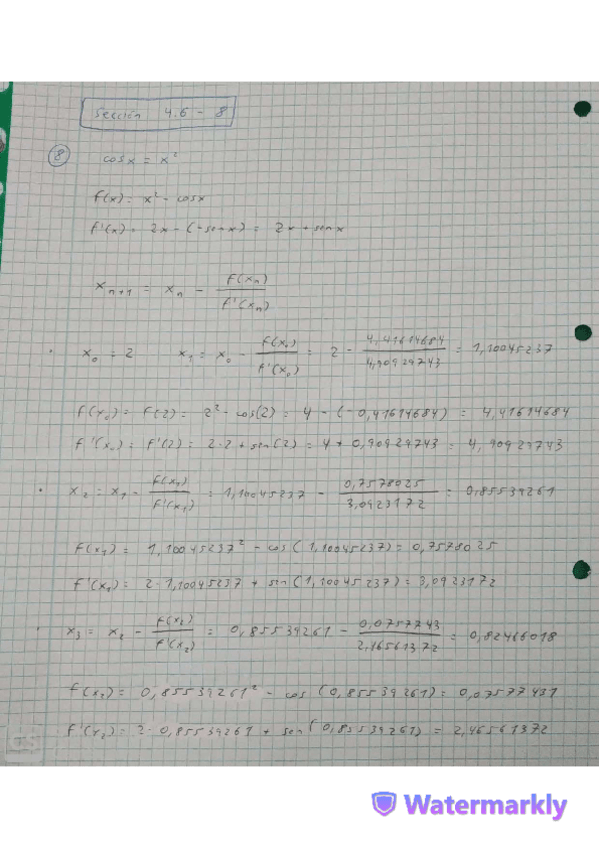 Sección 4.6 - 8
⑧ cosx = x²
f(x) = x² - cosx
f'(x) = 2x - (-senx) = 2x + senx
x_{n+1} = x_n - f(x_n) / f'(x_n)
· x₀ = 2 x₁ = x₀ - f(x₀) / f'(x₀) = 2 - 4,41614684 / 4,90929743 = 1,10045237
f(x₀) = f(2) = 2² - cos(2) = 4 - (-0,41614684) = 4,41614684
f'(x₀) = f'(2) = 2·2 + sin(2) = 4 + 0,90929743 = 4,90929743
· x₂ = x₁ - f(x₁) / f'(x₁) = 1,10045237 - 0,7578025 / 3,0923172 = 0,85539261
f(x₁) = 1,10045237² - cos(1,10045237) = 0,7578025
f'(x₁) = 2·1,10045237 + sin(1,10045237) = 3,0923172
· x₃ = x₂ - f(x₂) / f'(x₂) = 0,85539261 - 0,0757743 / 2,46561372 = 0,82466018
f(x₂) = 0,85539261² - cos(0,85539261) = 0,07577431
f'(x₂) = 2·0,85539261 + sen(0,85539261) = 2,46561372
Watermarkly